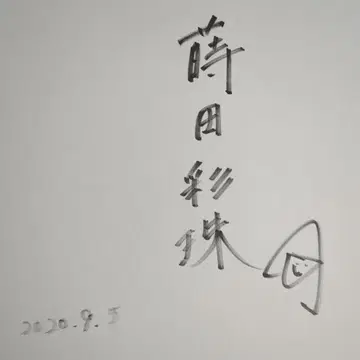 蒔田彩珠
2020.9.5